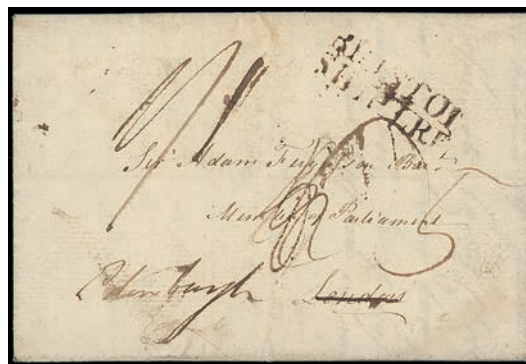 BRISTOL
SHIP LRE
Sir Adam Fergusson Bart
Member of Parliament
Edenburgh London